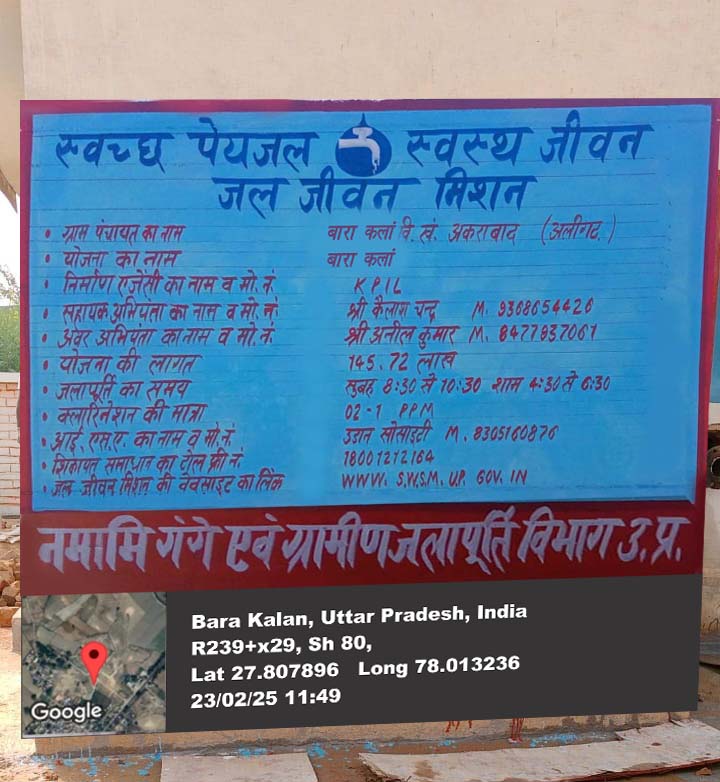 स्वच्छ पेयजल स्वस्थ जीवन
जल जीवन मिशन
• ग्राम पंचायत का नाम बारा कलां वि. खं. अकराबाद (अलीगढ़)
• योजना का नाम बारा कलां
• निर्माण एजेंसी का नाम व मो. नं. KPIL
• सहायक अभियंता का नाम व मो. नं. श्री कैलाश चन्द्र M. 9368654426
• अवर अभियंता का नाम व मो. नं. श्री अनील कुमार M. 8477937061
• योजना की लागत 145.72 लाख
• जलापूर्ति का समय सुबह 8:30 से 10:30 शाम 4:30 से 6:30
• क्लारिनेशन की मात्रा 02-1 PPM
• आई. एस. ए. का नाम व मो. नं. उडान सोसाइटी M. 8305160876
• शिकायत समाधान का टोल फ्री नं. 18001212164
• जल जीवन मिशन की वेवसाइट का लिंक WWW. S.W.S.M. U.P. GOV. IN
नमामि गंगे एवं ग्रामीण जलापूर्ति विभाग उ. प्र.
Bara Kalan, Uttar Pradesh, India
R239+x29, Sh 80,
Lat 27.807896 Long 78.013236
23/02/25 11:49
Google